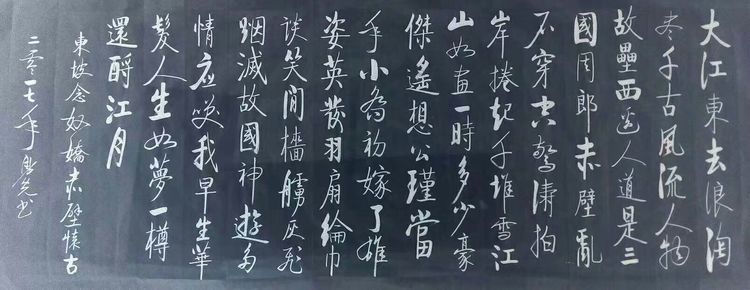 大江東去浪淘
尽千古風流人物
故壘西边人道是三
國周郎赤壁亂
石穿空驚濤拍
岸捲起千堆雪江
山如画一時多少豪
傑遙想公瑾當
年小喬初嫁了雄
姿英發羽扇綸巾
談笑間檣艣灰飛
烟滅故國神遊多
情应笑我早生華
髮人生如夢一樽
還酹江月
東坡念奴嬌赤壁懷古
二零一七年书